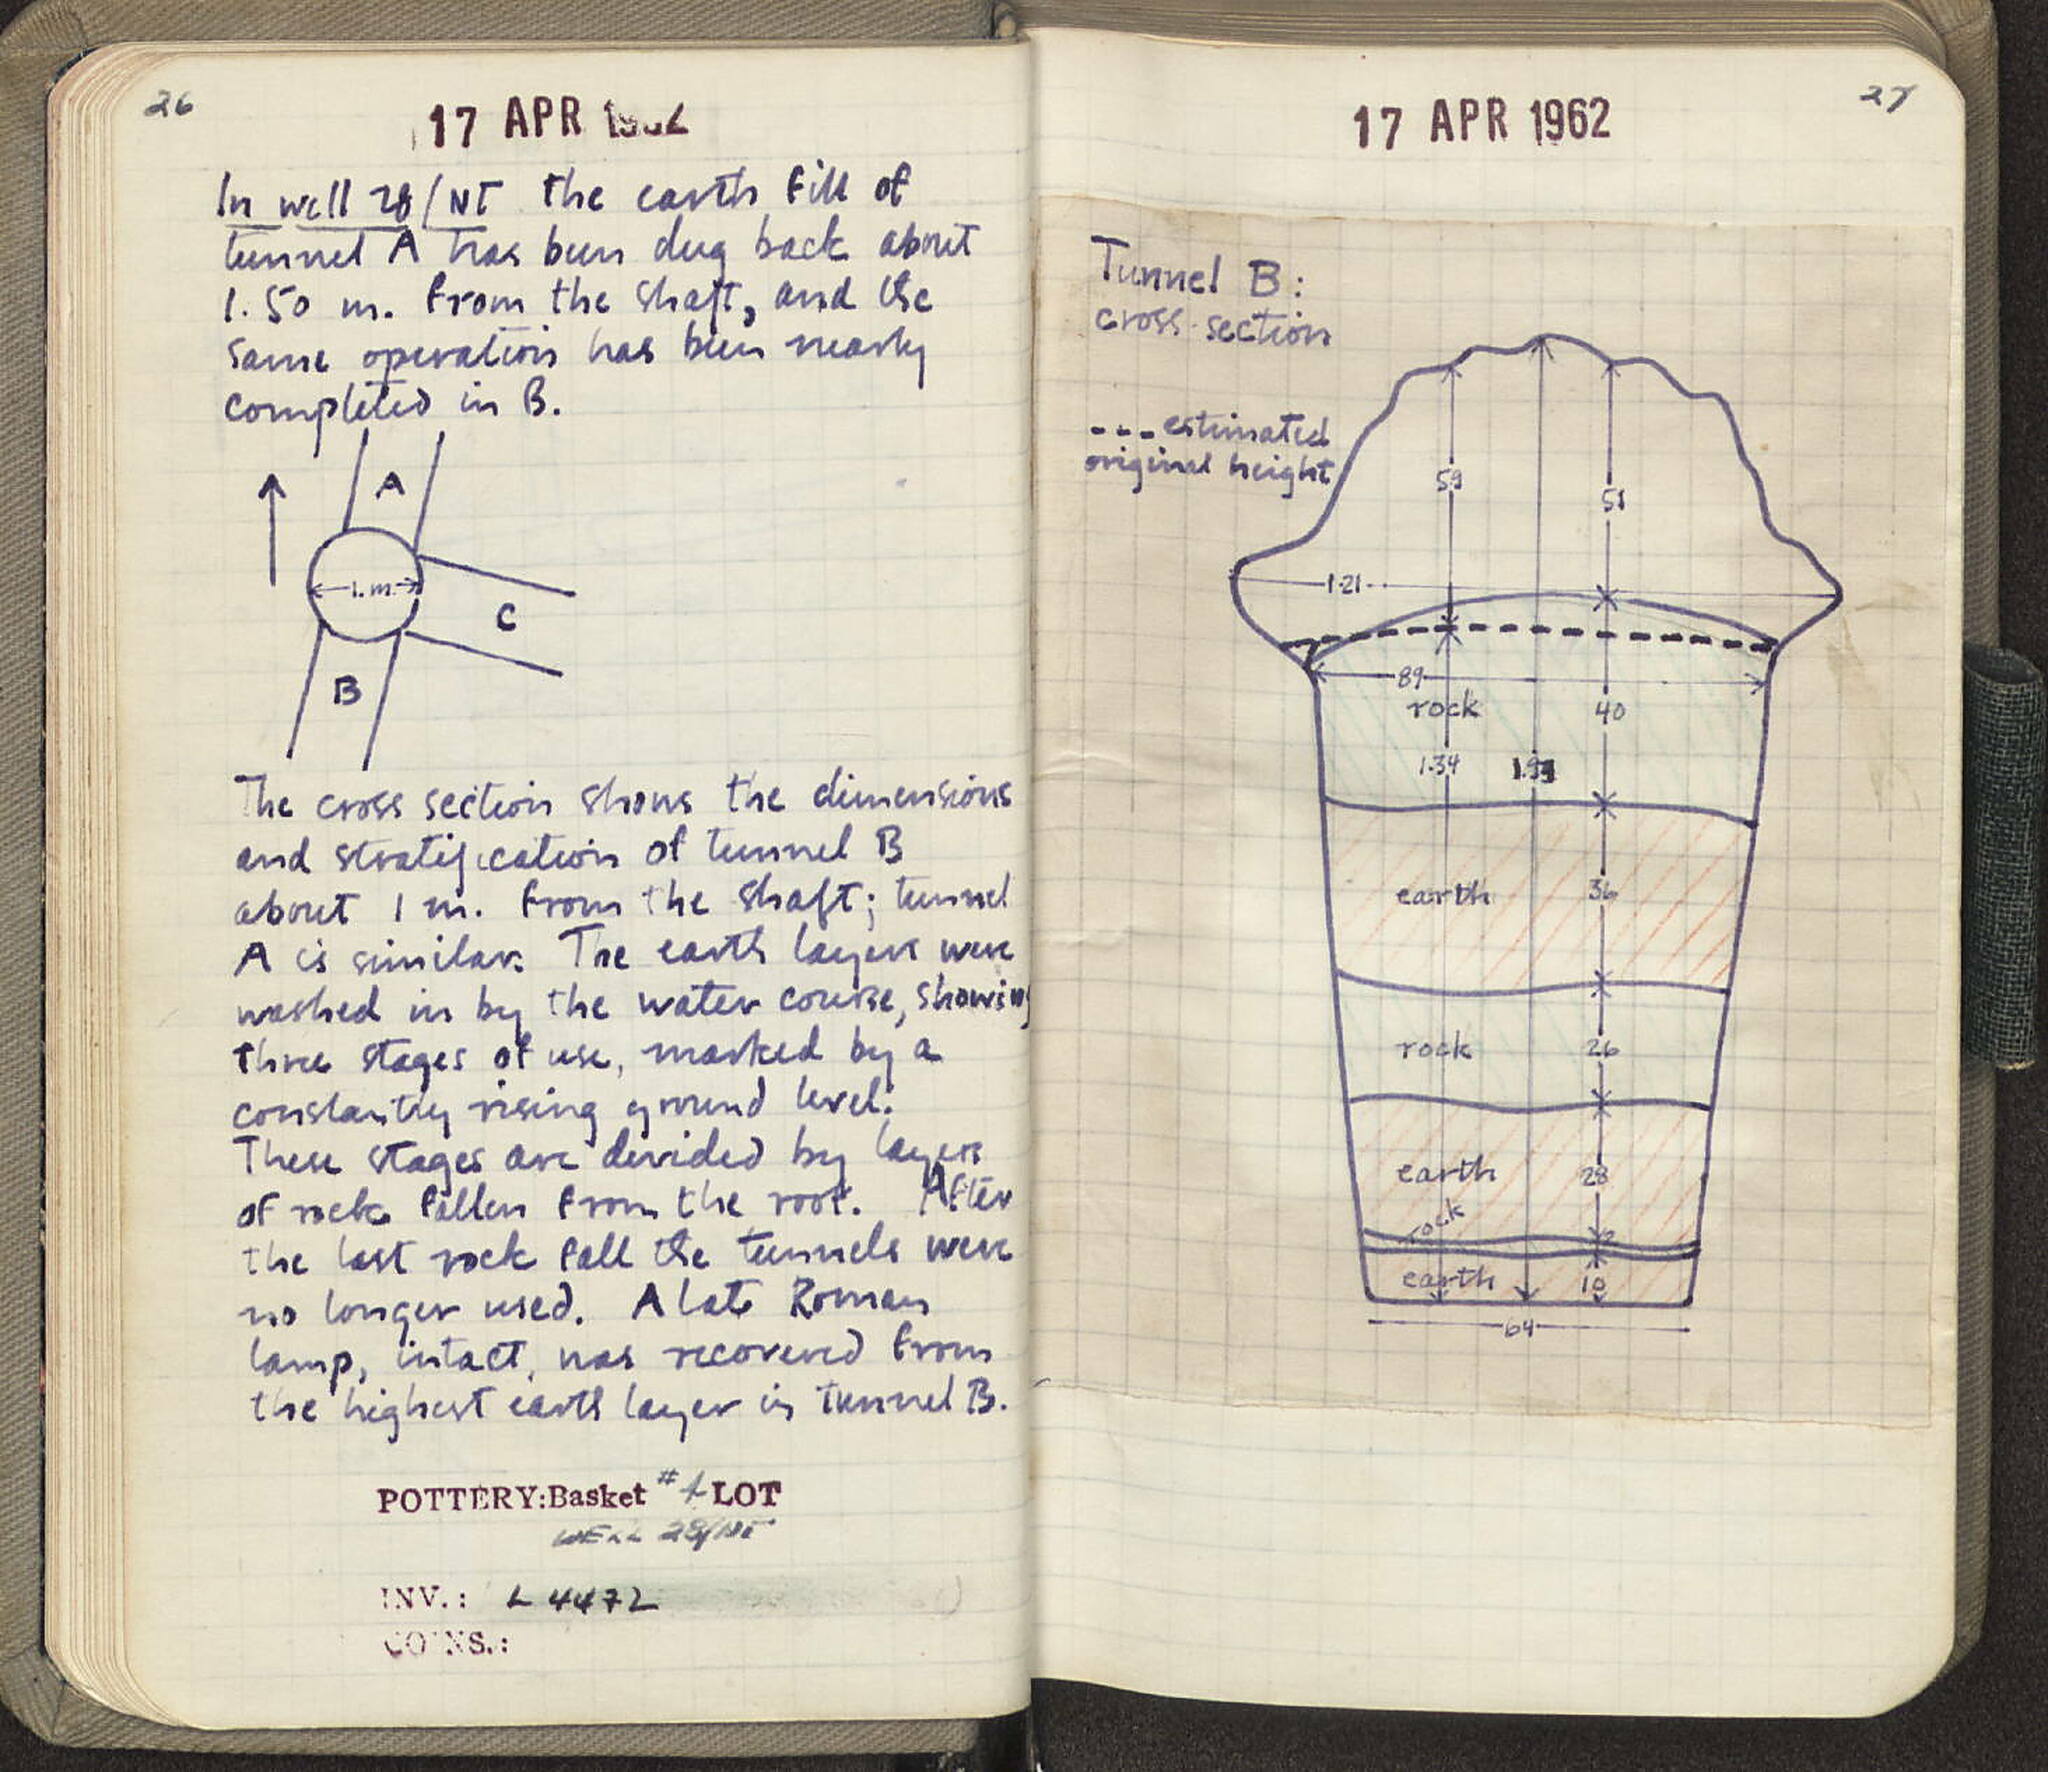 26
17 APR 1962
In well 28/NT the earth fill of
tunnel A has been dug back about
1.50 m. from the shaft, and the
same operation has been nearly
completed in B.
A
1. m.
C
B
The cross section shows the dimensions
and stratification of tunnel B
about 1 m. from the shaft; tunnel
A is similar. The earth layers were
washed in by the water course, showing
three stages of use, marked by a
constantly rising ground level.
These stages are devided by layers
of rock fallen from the roof. After
the last rock fall the tunnels were
no longer used. A late Roman
lamp, intact, was recovered from
the highest earth layer in tunnel B.
POTTERY:Basket #1 LOT
WELL 28/NT
INV.: L 4472
COINS.:
27
17 APR 1962
Tunnel B:
cross section
--- estimated
original height
59
51
1.21
89
rock
40
1.34
earth
36
rock
26
earth
28
rock
2
earth
10
64